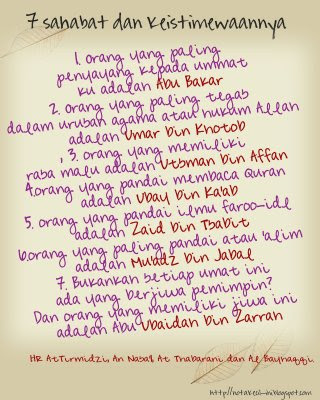 7 sahabat dan keistimewaannya
1. orang yang paling
penyayang kepada ummat
ku adalah Abu Bakar
2. orang yang paling tegas
dalam urusan agama atau hukum Allah
adalah Umar bin Khotob
, 3. orang yang memiliki
rasa malu adalah Utsman bin Affan
4.orang yang pandai membaca Quran
adalah Ubay bin Ka'ab
5. orang yang pandai ilmu faroo-idl
adalah Zaid bin Tsabit
6.orang yang paling pandai atau 'alim
adalah Mu'adz bin Jabal
7. Bukankan setiap umat ini
ada yang berjiwa pemimpin?
Dan orang yang memiliki jiwa ini
adalah Abu Ubaidah bin Zarrah
HR AtTurmidzi, An Nasa'i, At Thabarani dan Al Bayhaqqi.